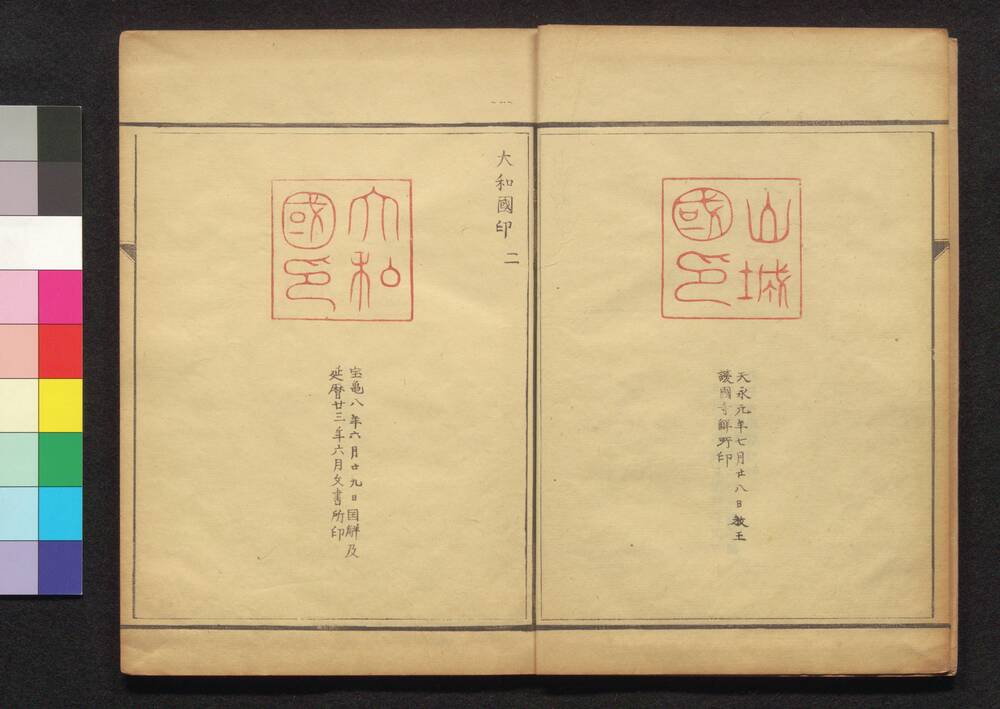 山城
國印
天永元年七月廿八日教王
護國寺解所印
大和國印 二
大和
國印
宝亀八年六月廿九日国解及
延暦廿三年六月文書所印